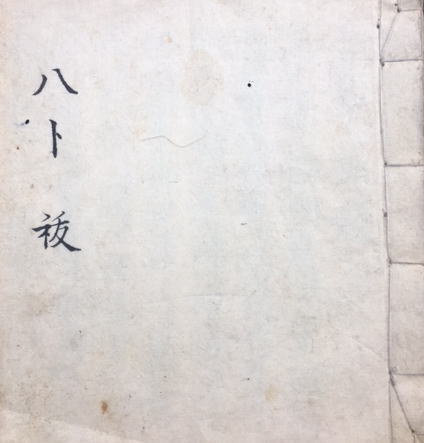 八卜祓